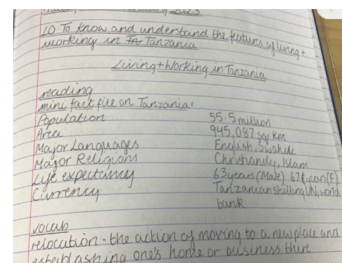 2023
LO To know and understand the features of living +
working in Tanzania
Living + Working in Tanzania
reading
mini fact file on Tanzania:
Population 55.5 million
Area 945,087 sq km
Major Languages English, Swahili
Major Religions Christianity, Islam
Life expectancy 63 years (Male), 67 (F)
Currency Tanzanian shilling UN, world
bank
vocab
relocation - the action of moving to a new place and
establishing one's home or business there